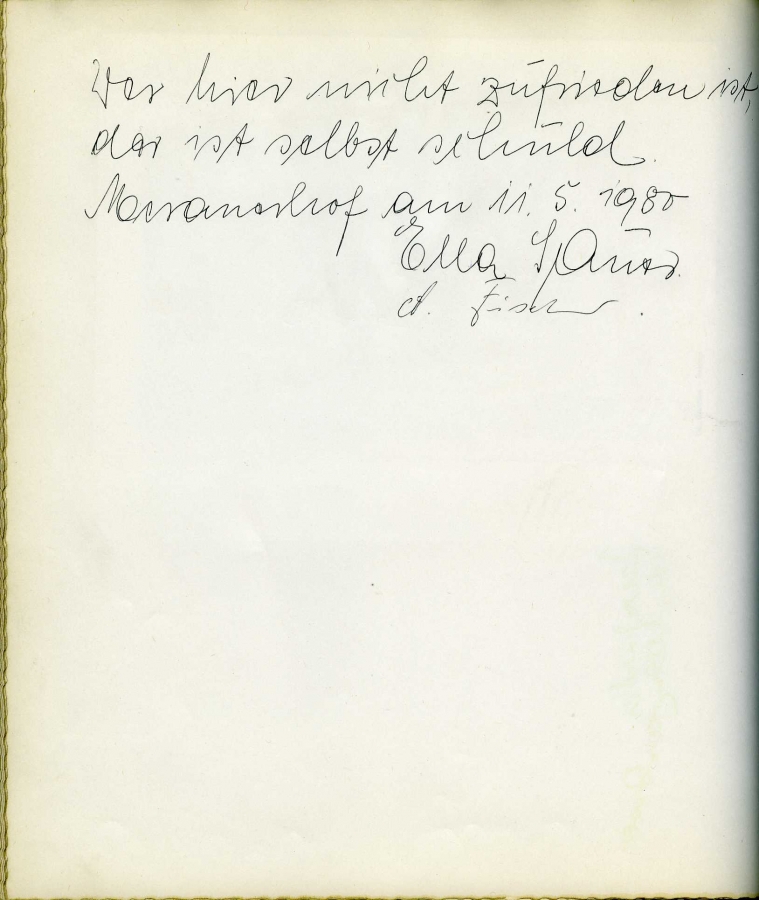 Wer hier nicht zufrieden ist,
der ist selbst schuld.
Meranerhof am 11. 5. 1980
Ella
A. Fischer.